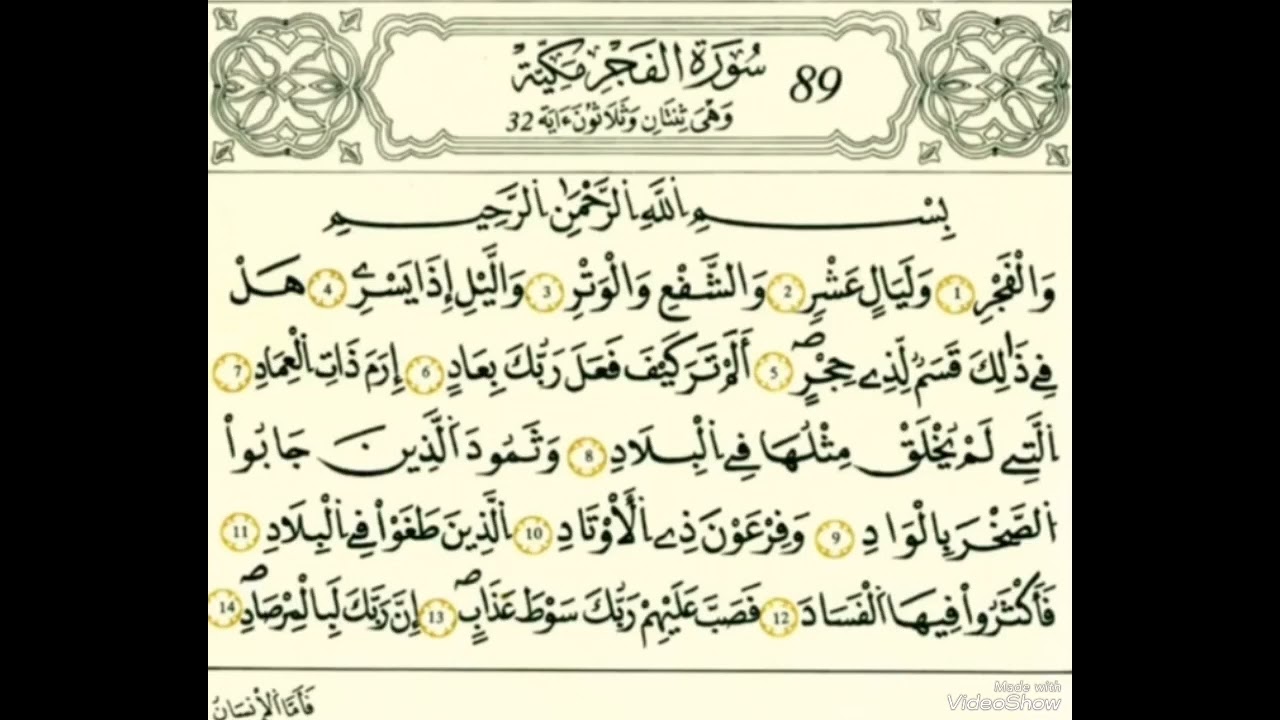 89 سُورَةُ الْفَجْرِ مَكِّيَّةٌ
وَهْيَ ثِنْتَانِ وَثَلَاثُونَ ءَايَةً 32
بِسْمِ اِ۬للَّهِ اِ۬لرَّحْمَٰنِ اِ۬لرَّحِيمِ
وَالْفَجْرِ 1 وَلَيَالٍ عَشْرٍ 2 وَالشَّفْعِ وَالْوَتْرِ 3 وَالَّيْلِ إِذَا يَسْرِۦ 4 هَلْ
فِے ذَٰلِكَ قَسَمٌ لِّذِے حِجْرٍ 5 أَلَمْ تَرَ كَيْفَ فَعَلَ رَبُّكَ بِعَادٍ 6 إِرَمَ ذَاتِ اِ۬لْعِمَادِ 7
اِ۬لَّتِے لَمْ يُخْلَقْ مِثْلُهَا فِے اِ۬لْبِلَادِ 8 وَثَمُودَ اَ۬لَّذِينَ جَابُواْ
اُ۬لصَّخْرَ بِالْوَادِ 9 وَفِرْعَوْنَ ذِے اِ۬لْأَوْتَادِ 10 اِ۬لَّذِينَ طَغَوْاْ فِے اِ۬لْبِلَادِ 11
فَأَكْثَرُواْ فِيهَا اَ۬لْفَسَادَ 12 فَصَبَّ عَلَيْهِمْ رَبُّكَ سَوْطَ عَذَابٍ 13 إِنَّ رَبَّكَ لَبِالْمِرْصَادِ 14
فَأَمَّا اَ۬لْإِنسَانُ
Made with
VideoShow